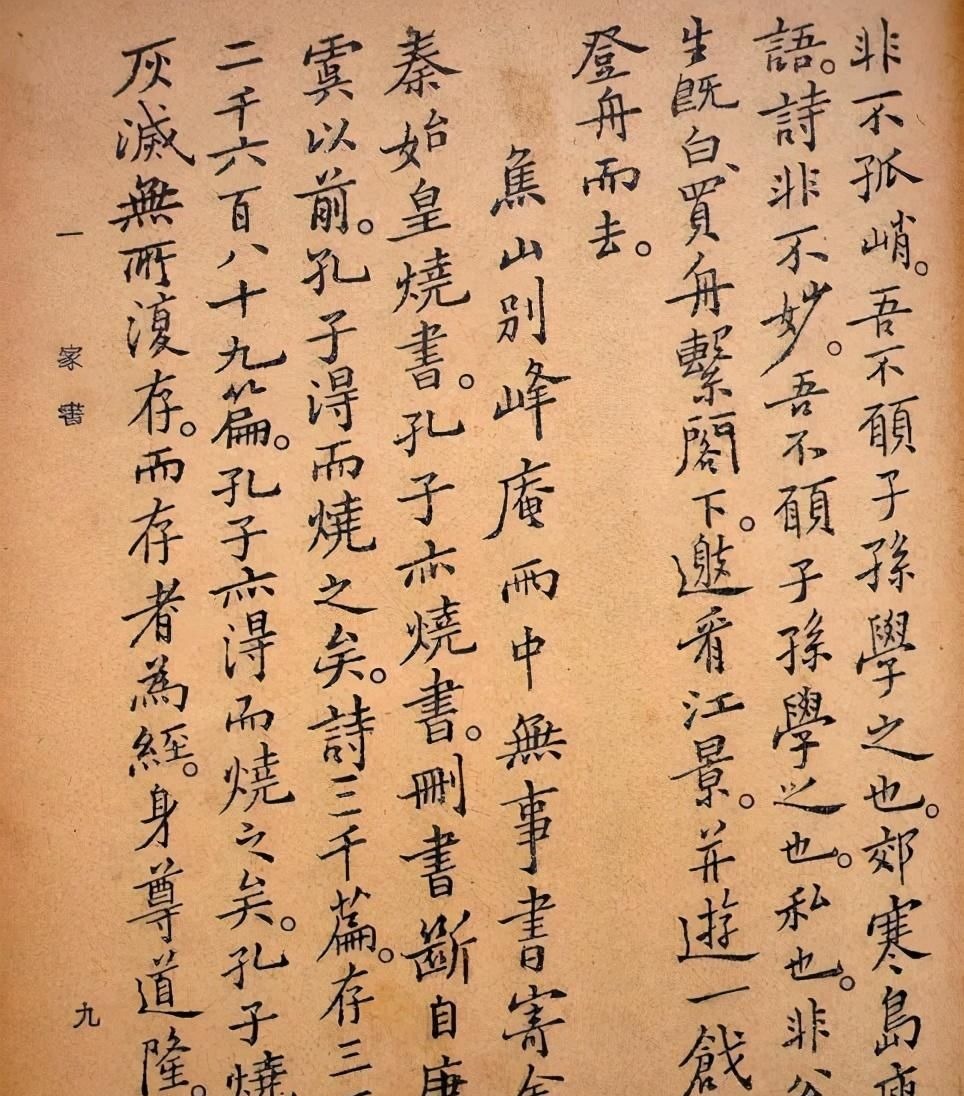 非不孤峭。吾不願子孫學之也。郊寒島瘦
語。詩非不妙。吾不願子孫學之也。私也。非公
生既白、買舟繫閣下。邀看江景。并遊一戧
登舟而去。
焦山別峰庵雨中無事書寄舍
秦始皇燒書。孔子亦燒書。刪書斷自唐
虞以前。孔子得而燒之矣。詩三千篇。存三百
二千六百八十九篇。孔子亦得而燒之矣。孔子燒
灰滅無所復存。而存者為經。身尊道隆。
一 家書
九